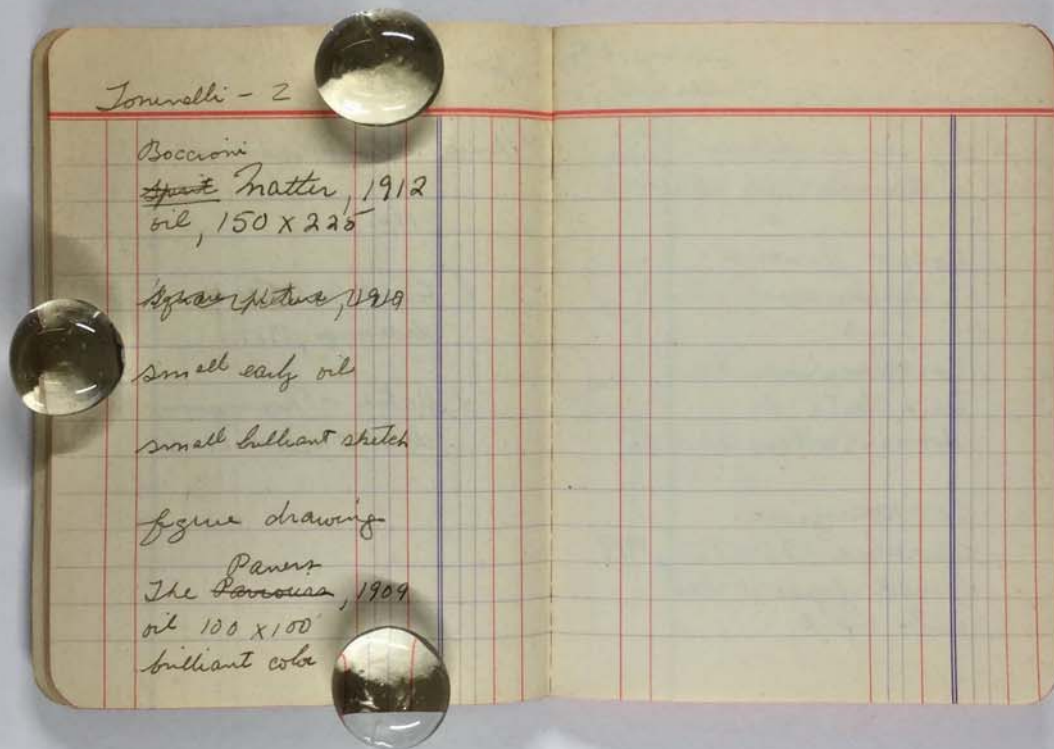 Toninelli - 2
Boccioni
Spirit Matter, 1912
oil, 150 x 225
Square picture, 1910
small early oil
small brilliant sketch
figure drawing
Pavers
The , 1909
oil 100 x 100
brilliant color